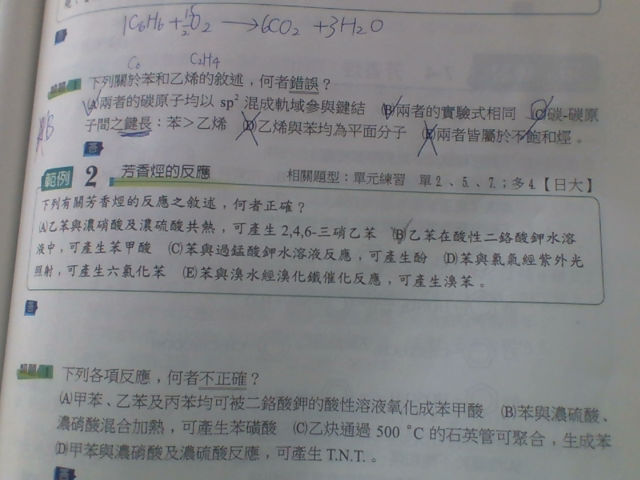 1C6H6 + 15/2 O2 → 6CO2 + 3H2O
答
C6 C2H4
類題 1 下列關於苯和乙烯的敘述，何者錯誤？
(A)兩者的碳原子均以 sp² 混成軌域參與鍵結 (B)兩者的實驗式相同 (C)碳-碳原
子間之鍵長：苯＞乙烯 (D)乙烯與苯均為平面分子 (E)兩者皆屬於不飽和烴。
答
範例 2 芳香烴的反應 相關題型：單元練習 單2、5、7.；多4【日大】
下列有關芳香烴的反應之敘述，何者正確？
(A)乙苯與濃硝酸及濃硫酸共熱，可產生2,4,6-三硝乙苯 (B)乙苯在酸性二鉻酸鉀水溶
液中，可產生苯甲酸 (C)苯與過錳酸鉀水溶液反應，可產生酚 (D)苯與氯氣經紫外光
照射，可產生六氯化苯 (E)苯與溴水經溴化鐵催化反應，可產生溴苯。
答
類題 1 下列各項反應，何者不正確？
(A)甲苯、乙苯及丙苯均可被二鉻酸鉀的酸性溶液氧化成苯甲酸 (B)苯與濃硫酸、
濃硝酸混合加熱，可產生苯磺酸 (C)乙炔通過 500 ℃ 的石英管可聚合，生成苯
(D)甲苯與濃硝酸及濃硫酸反應，可產生T.N.T.。
答